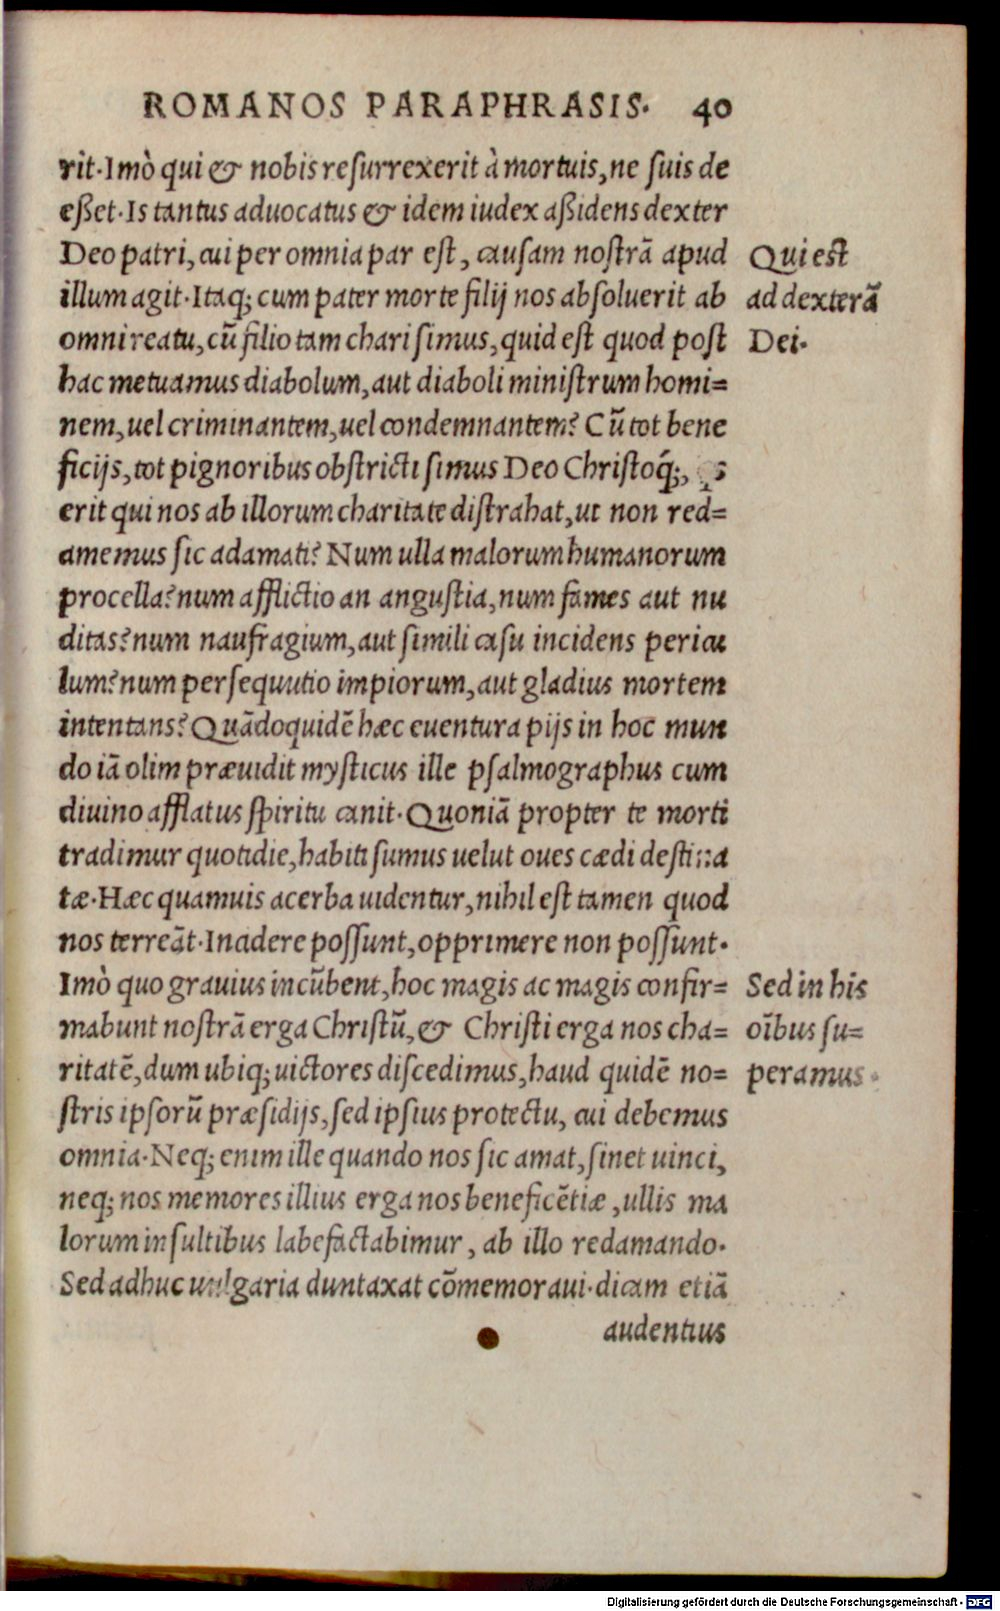 ROMANOS PARAPHRASIS. 40
rit. Imò qui & nobis resurrexerit à mortuis, ne suis de
eßet. Is tantus aduocatus & idem iudex aßidens dexter
Deo patri, cui per omnia par est, causam nostrā apud
illum agit. Itaq; cum pater morte filij nos absoluerit ab
omni reatu, cū filio tam chari simus, quid est quod post
hac metuamus diabolum, aut diaboli ministrum homi=
nem, uel criminantem, uel condemnantem? Cū tot bene
ficijs, tot pignoribus obstricti simus Deo Christoq́;,
erit qui nos ab illorum charitate distrahat, ut non red=
amemus sic adamati? Num ulla malorum humanorum
procella? num afflictio an angustia, num fames aut nu
ditas? num naufragium, aut simili casu incidens pericu
lum? num persequutio impiorum, aut gladius mortem
intentans? Quādoquidē hæc euentura pijs in hoc mun
do iā olim præuidit mysticus ille psalmographus cum
diuino afflatus spiritu canit. Quoniā propter te morti
tradimur quotidie, habiti sumus uelut oues cædi destina
tæ. Hæc quamuis acerba uidentur, nihil est tamen quod
nos terreāt. Inadere possunt, opprimere non possunt.
Imò quo grauius incūbent, hoc magis ac magis confir=
mabunt nostrā erga Christū, & Christi erga nos cha=
ritatē, dum ubiq; uictores discedimus, haud quidē no=
stris ipsorū præsidijs, sed ipsius protectu, cui debemus
omnia. Neq; enim ille quando nos sic amat, sinet uinci,
neq; nos memores illius erga nos beneficētiæ, ullis ma
lorum insultibus labefactabimur, ab illo redamando.
Sed adhuc uulgaria duntaxat cōmemoraui. dicam etiā
audentius
Qui est
ad dexterā
Dei.
Sed in his
oībus su=
peramus.
Digitalisierung gefördert durch die Deutsche Forschungsgemeinschaft - DFG